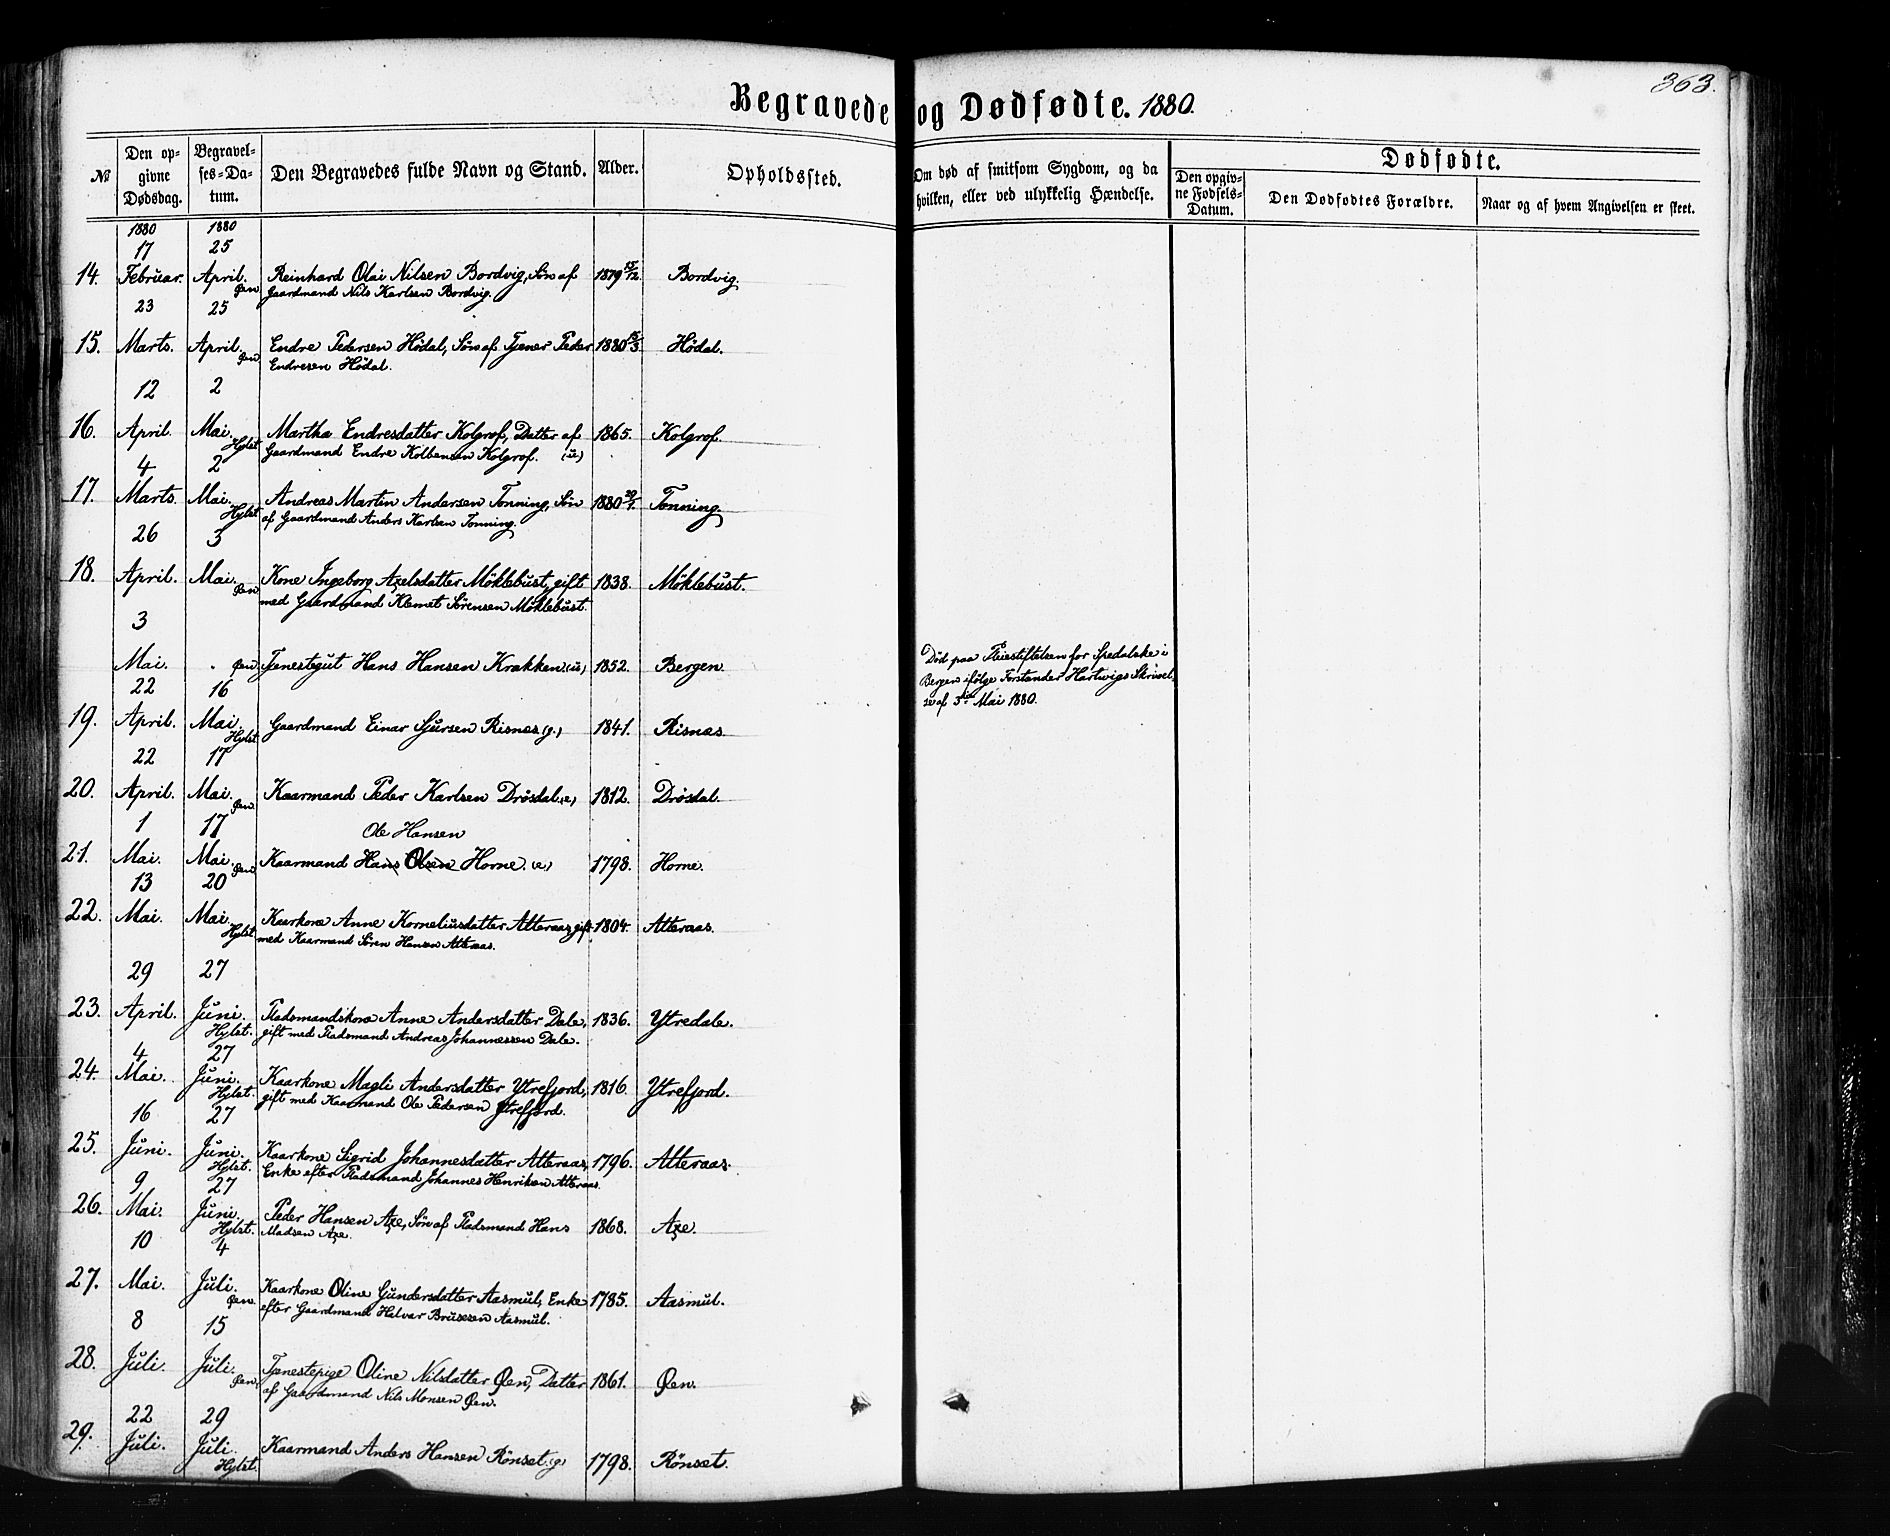 363.
Begravede og Dødfødte. 1880.
№
Den opgivne Dødsdag.
Begravelses-Datum.
Den Begravedes fulde Navn og Stand.
Alder.
Opholdssted.
Om død af smitsom Sygdom, og da hvilken, eller ved ulykkelig Hændelse.
Dødfødte.
Den opgivne Fødsels-Datum.
Den Dødfødtes Forældre.
Naar og af hvem Angivelsen er skeet.
1880 1880
17 25
14. Februar. April. Øen Reinhard Olai Nilsen Bordvig, Søn af 1879 Bordvig.
Gaardmand Nils Karlsen Bordvig.
23 25
15. Marts. April. Øen Endre Pedersen Hødal, Søn af Tjener Peder 1880 Hødal.
Endresen Hødal.
12 2
16. April. Mai. Hylst Martha Endresdatter Kolgrof, Datter af 1865. Kolgrof.
Gaardmand Endre Kolbensen Kolgrof. (u)
4 2
17. Marts. Mai. Hylst Andreas Martin Andersen Tonning, Søn 1880 Tonning.
af Gaardmand Anders Karlsen Tonning.
26 3
18. April. Mai. Øen Kone Ingeborg Axelsdatter Møklebust, gift 1838. Møklebust.
med Gaardmand Klemet Sørensen Møklebust.
3
Mai. Øen Tjenestegut Hans Hansen Krakken (u) 1852. Bergen. Død paa Pleiestiftelsen for Spedalske i
Bergen ifølge Forstander Hartwigs Skrivel-
se af 3die Mai 1880.
22 16
19. April. Mai. Hylst Gaardmand Einar Sjursen Risnes (g.) 1841. Risnæs
22 17
20. April. Mai. Øen Kaarmand Peder Karlsen Drøsdal (e) 1812. Drøsdal.
1 17
Ole Hansen
21. Mai. Mai. Øen Kaarmand Hans Olsen Horne. (e) 1798. Horne.
13 20
22. Mai. Mai. Hylst Kaarkone Anne Korneliusdatter Atteraas, gift 1804. Atteraas.
med Kaarmand Søren Hansen Atteraas.
29 27
23. April. Juni. Hylst. Pladsmandskone Anne Andersdatter Dale, 1836. Ytredale.
gift med Pladsmand Andreas Johannessen Dale.
4 27
24. Mai. Juni. Hylst. Kaarkone Magli Andersdatter Ytrefjord, 1816. Ytrefjord.
gift med Kaarmand Ole Pedersen Ytrefjord.
16 27
25. Juni. Juni. Hylst. Kaarkone Sigrid Johannesdatter Atteraas, 1796. Atteraas.
Enke efter Pladsmand Johannes Henriksen Atteraas.
9 27
26. Mai. Juni. Hylst. Peder Hansen Axe, Søn af Pladsmand Hans 1868. Axe.
Madsen Axe.
10 4
27. Mai. Juli. Øen. Kaarkone Oline Gundersdatter Aasmul, Enke 1785. Aasmul.
efter Gaardmand Halvar Brusesen Aasmul.
8 15
28. Juli. Juli. Øen. Tjenestepige Oline Nilsdatter Øen, Datter 1861. Øen.
af Gaardmand Nils Monsen Øen.
22 29
29. Juli. Juli. Hylst. Kaarmand Anders Hansen Rønset (g) 1798. Rønset.